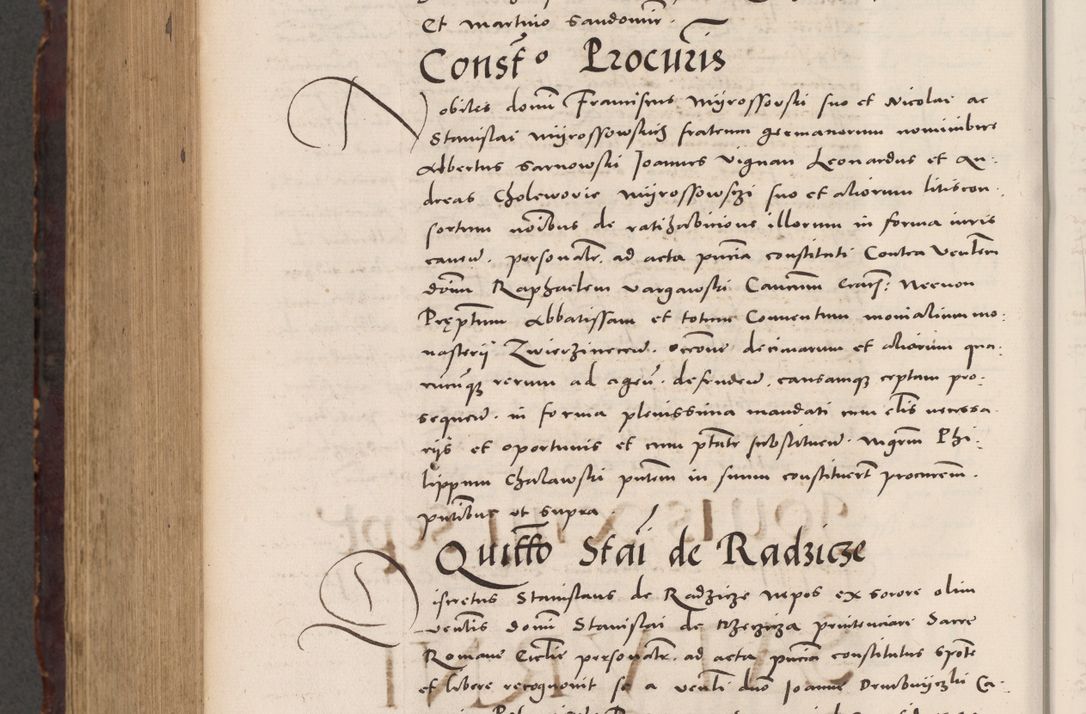 Et Martino Sandomir.
Constõ Procuris
Nobiles domi Franciscus Myrossowski suo et Nicolai ac
Stanislai Myrossowskich fratrum germanorum nominibus
Albertus Sarnowski Joannes Vignan Leonardus et An:
dreas Cholewovie Myrossowszi suo et aliorum litiscon:
sortum noĩbus de ratihabicione illorum in forma iuris
caven. personalr. ad acta pñcia constituti Contra Venlem
domĩ Raphaelem Vargawski Canonicum CracH. Necnon
Pręptum Abbatissam et totum Conventum monialium mo:
nasterij Zwierzinecen. occone decimarum et aliorum qua:
rucũq₃ rerum ad agen. defenden. causamq₃ ceptam pro:
sequen. in forma plenissima mandati cum cl̃is necessa
rijs et oportunis et cum ptãte substituen. Mgrm Phi:
lippum Chalawski pñtem in suum constituert procurem.
pñtibus ut supra.
Quittõ Stãi de Radzicze
Discretus Stanislaus de Radzicze Nepos ex sorore olim
venlis domi Stanislai de Rzeczicza penitenciarii Sacre
Romane Ecclie personalr. ad acta pñcia constitutus sponte
et libere recognovit se a venli dno Joanne Drnibwyczki Ca-